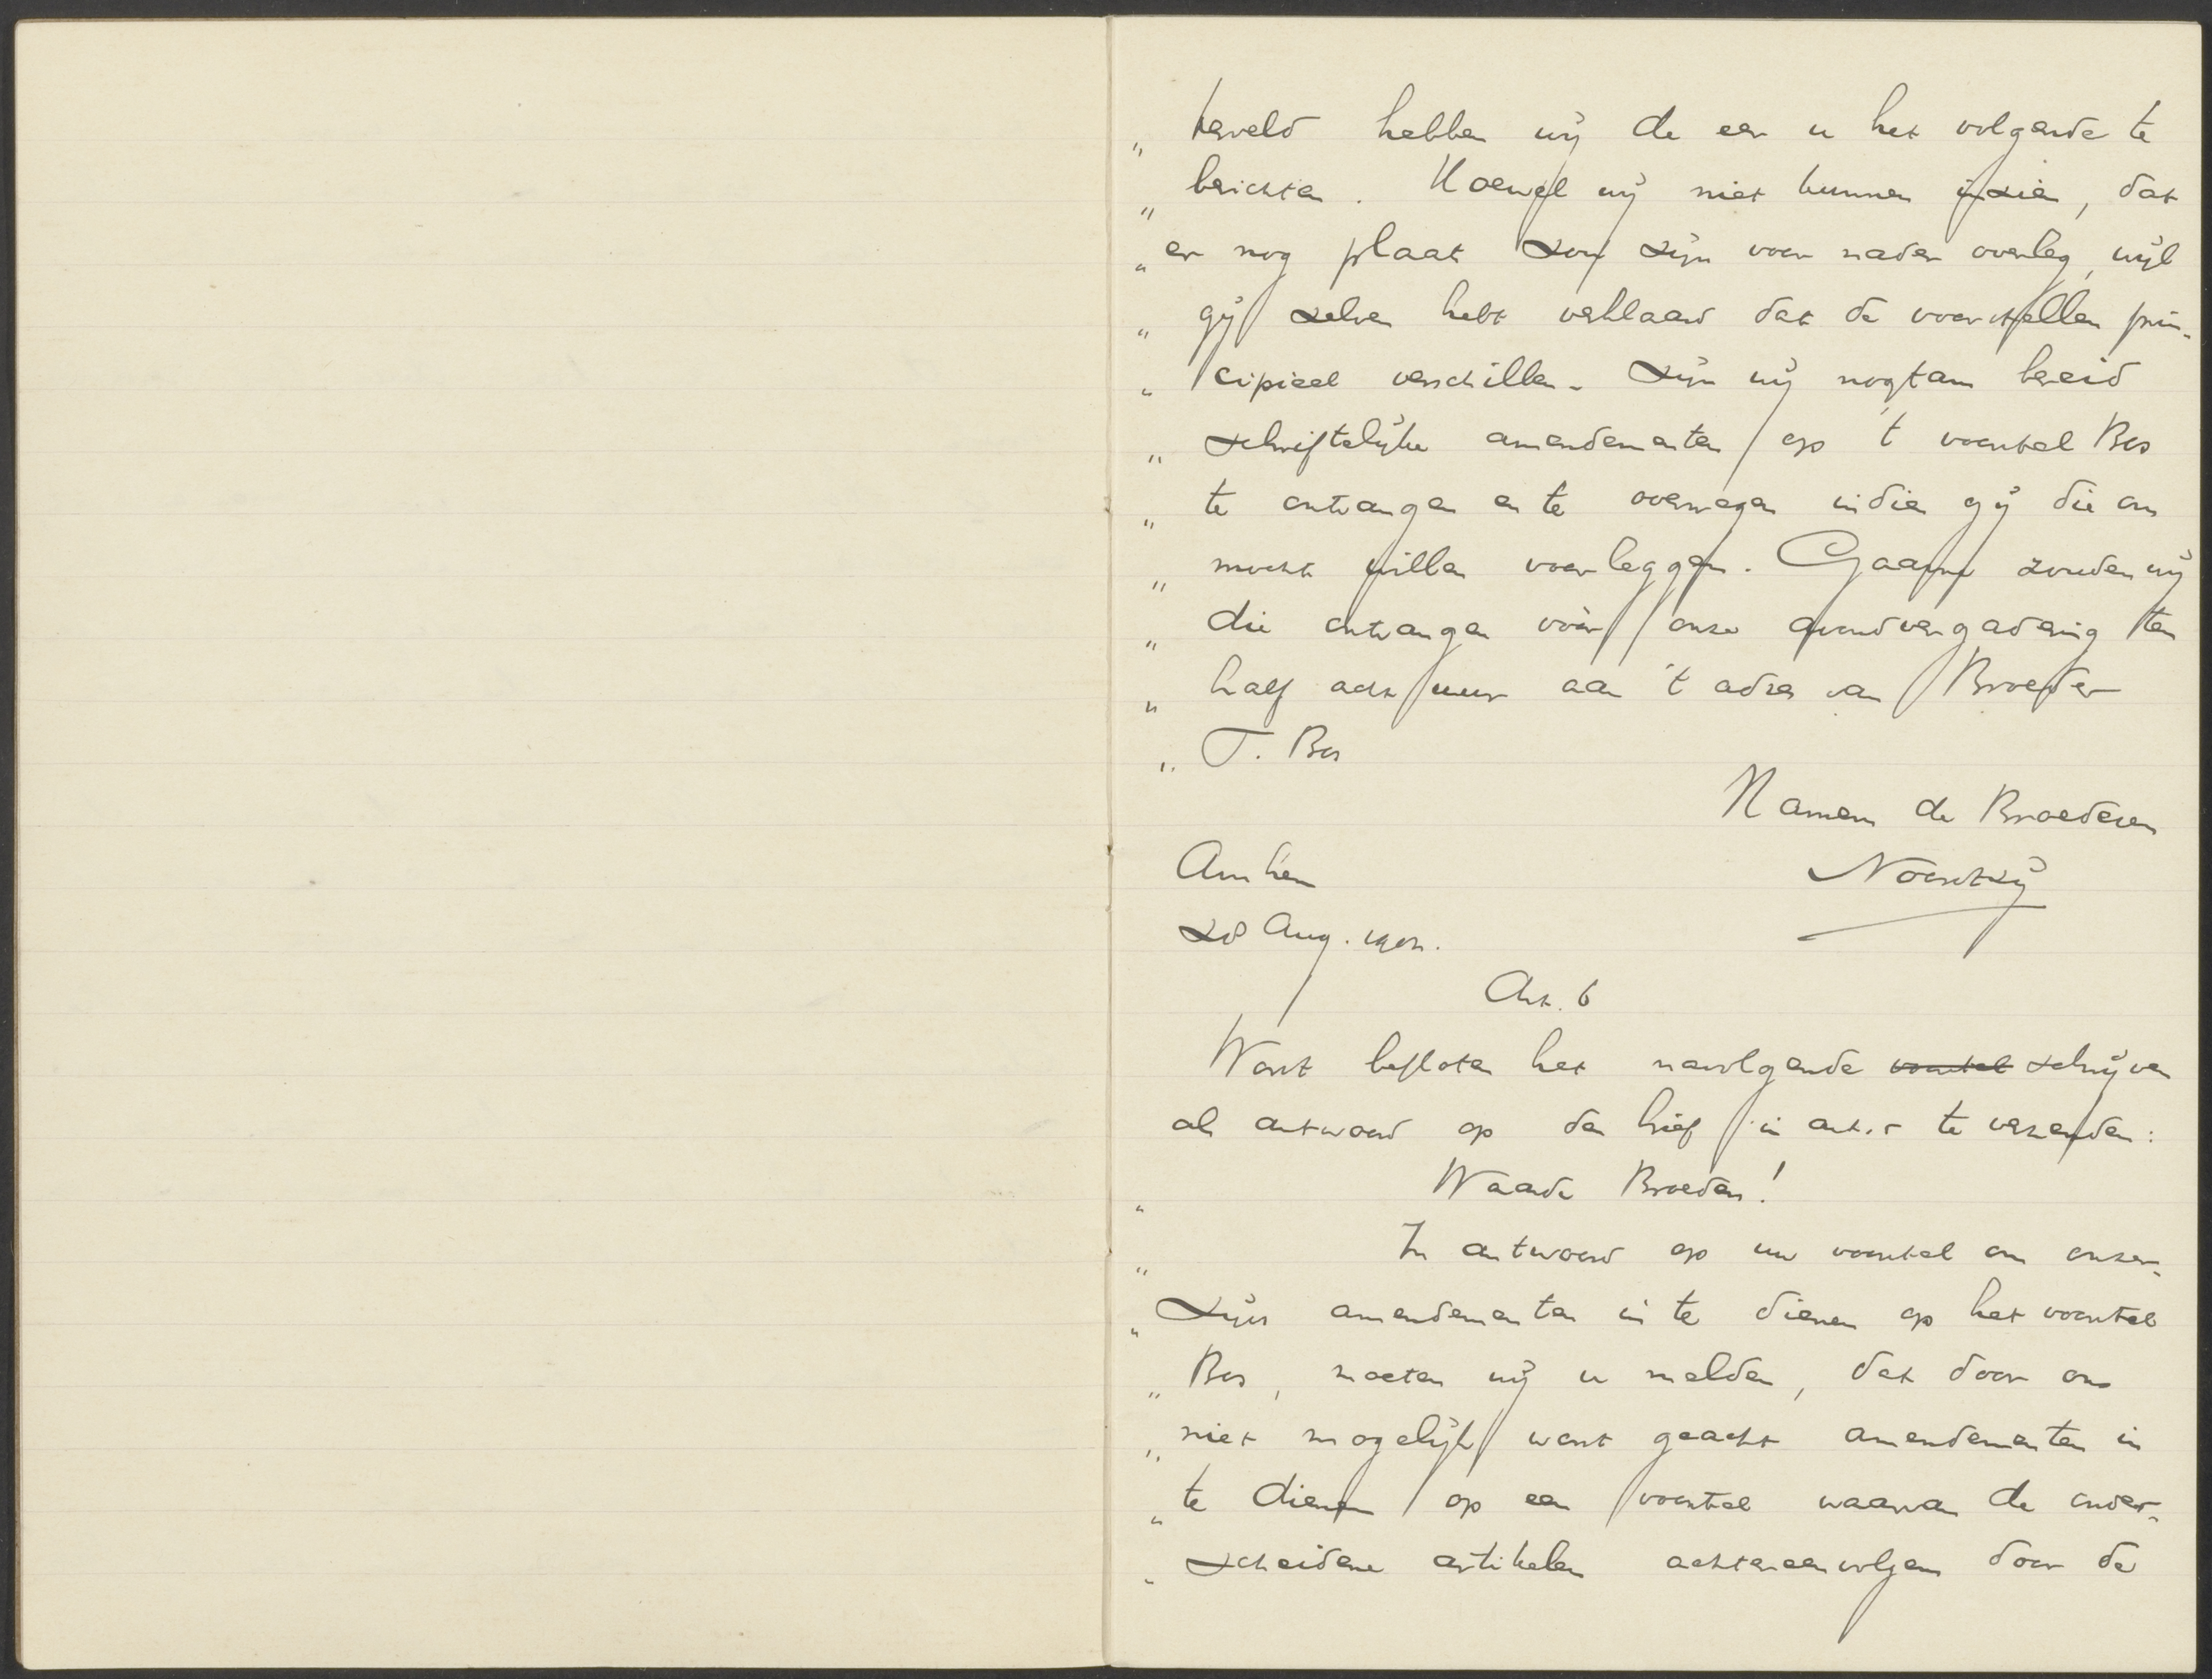 „ herveld hebben wij de eer u het volgende te
„ berichten. Hoewel wij niet kunnen inzien, dat
„ er nog plaats zou zijn voor nader overleg, wijl
„ gij zelven hebt verklaard dat de voorstellen prin-
„ cipieel verschillen - zijn wij nogtans bereid
„ schriftelijke amendementen op 't voorstel Bos
„ te ontvangen en te overwegen indien gij die ons
„ mocht willen voorleggen. Gaarne zouden wij
„ die ontvangen vóór onze avondvergadering ten
„ half acht uur aan 't adres van Broeder
„ T. Bos
Namens de Broederen
Arnhem Noordtzij
28 Aug. 1902.
Art. 6
Wordt besloten het navolgende voorstel schrijven
als antwoord op den brief in art. 5 te verzenden:
„ Waarde Broeders!
„ In antwoord op uw voorstel om onzer-
„ zijds amendementen in te dienen op het voorstel
„ Bos, moeten wij u melden, dat door ons
„ niet mogelijk wordt geacht amendementen in
„ te dienen op een voorstel waarvan de onder-
„ scheidene artikelen achtereenvolgens door de